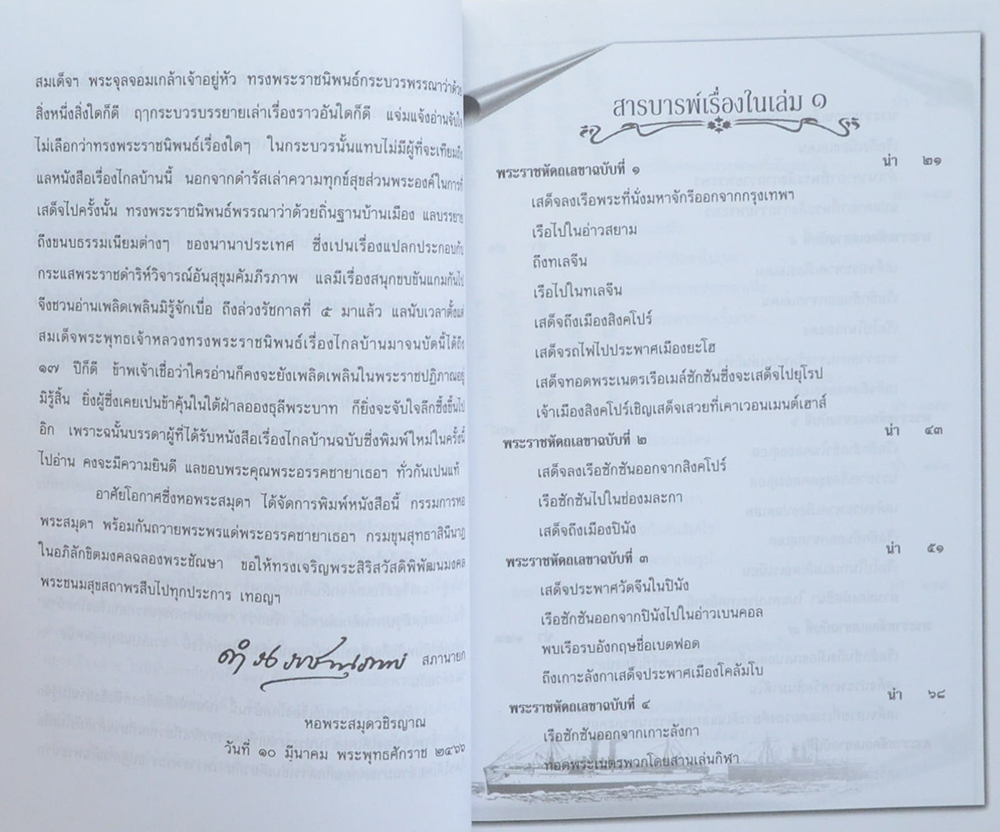 สมเด็จฯ พระจุลจอมเกล้าเจ้าอยู่หัว ทรงพระราชนิพนธ์กระบวรพรรณาว่าด้วย
สิ่งหนึ่งสิ่งใดก็ดี ฤๅกระบวรบรรยายเล่าเรื่องราวอันใดก็ดี แจ่มแจ้งอ่านจับใจ
ไม่เลือกว่าทรงพระราชนิพนธ์เรื่องใดๆ ในกระบวรนั้นแทบไม่มีผู้ที่จะเทียมถึง
แลหนังสือเรื่องไกลบ้านนี้ นอกจากดำรัสเล่าความทุกข์สุขส่วนพระองค์ในการที่
เสด็จไปครั้งนั้น ทรงพระราชนิพนธ์พรรณาว่าด้วยถิ่นฐานบ้านเมือง แลบรรยาย
ถึงขนบธรรมเนียมต่างๆ ของนานาประเทศ ซึ่งเปนเรื่องแปลกประกอบกับ
กระแสพระราชดำริห์วิจารณ์อันสุขุมคัมภีรภาพ แลมีเรื่องสนุกขบขันแกมกันไป
จึงชวนอ่านเพลิดเพลินมิรู้จักเบื่อ ถึงล่วงรัชกาลที่ ๕ มาแล้ว แลนับเวลาตั้งแต่
สมเด็จพระพุทธเจ้าหลวงทรงพระราชนิพนธ์เรื่องไกลบ้านมาจนบัดนี้ได้ถึง
๑๗ ปีก็ดี ข้าพเจ้าเชื่อว่าใครอ่านก็คงจะยังเพลิดเพลินในพระราชปฏิภาณอยู่
มิรู้สิ้น ยิ่งผู้ซึ่งเคยเปนข้าคุ้นในใต้ฝ่าลอองธุลีพระบาท ก็ยิ่งจะจับใจลึกซึ้งขึ้นไป
อีก เพราะฉนั้นบรรดาผู้ที่ได้รับหนังสือเรื่องไกลบ้านฉบับซึ่งพิมพ์ใหม่ในครั้งนี้
ไปอ่าน คงจะมีความยินดี แลขอบพระคุณพระอรรคชายาเธอฯ ทั่วกันเปนแท้
อาศัยโอกาศซึ่งหอพระสมุดฯ ได้จัดการพิมพ์หนังสือนี้ กรรมการหอ
พระสมุดฯ พร้อมกันถวายพระพรแด่พระอรรคชายาเธอฯ กรมขุนสุทธาสินีนาฏ
ในอภิลักขิตมงคลฉลองพระชัณษา ขอให้ทรงเจริญพระสิริสวัสดิพิพัฒนมงคล
พระชนมสุขสถาพรสืบไปทุกประการ เทอญฯ
สภานายก
หอพระสมุดวชิรญาณ
วันที่ ๑๐ มีนาคม พระพุทธศักราช ๒๔๖๖
สารบารพ์เรื่องในเล่ม ๑
พระราชหัดถเลขาฉบับที่ ๑ น่า ๒๑
เสด็จลงเรือพระที่นั่งมหาจักรีออกจากกรุงเทพฯ
เรือไปในอ่าวสยาม
ถึงทเลจีน
เรือไปในทเลจีน
เสด็จถึงเมืองสิงคโปร์
เสด็จรถไฟไปประพาศเมืองยะโฮ
เสด็จทอดพระเนตรเรือเมล์ซักซันซึ่งจะเสด็จไปยุโรป
เจ้าเมืองสิงคโปร์เชิญเสด็จเสวยที่เคาเวอนเมนต์เฮาส์
พระราชหัดถเลขาฉบับที่ ๒ น่า ๔๓
เสด็จลงเรือซักซันออกจากสิงคโปร์
เรือซักซันไปในช่องมละกา
เสด็จถึงเมืองปินัง
พระราชหัดถเลขาฉบับที่ ๓ น่า ๕๑
เสด็จประพาศวัดจีนในปินัง
เรือซักซันออกจากปินังไปในอ่าวเบนคอล
พบเรือรบอังกฤษชื่อเบดฟอด
ถึงเกาะลังกาเสด็จประพาศเมืองโคลัมโบ
พระราชหัดถเลขาฉบับที่ ๔ น่า ๖๘
เรือซักซันออกจากเกาะลังกา
ทอดพระเนตรพวกโดยสานเล่นกิฬา